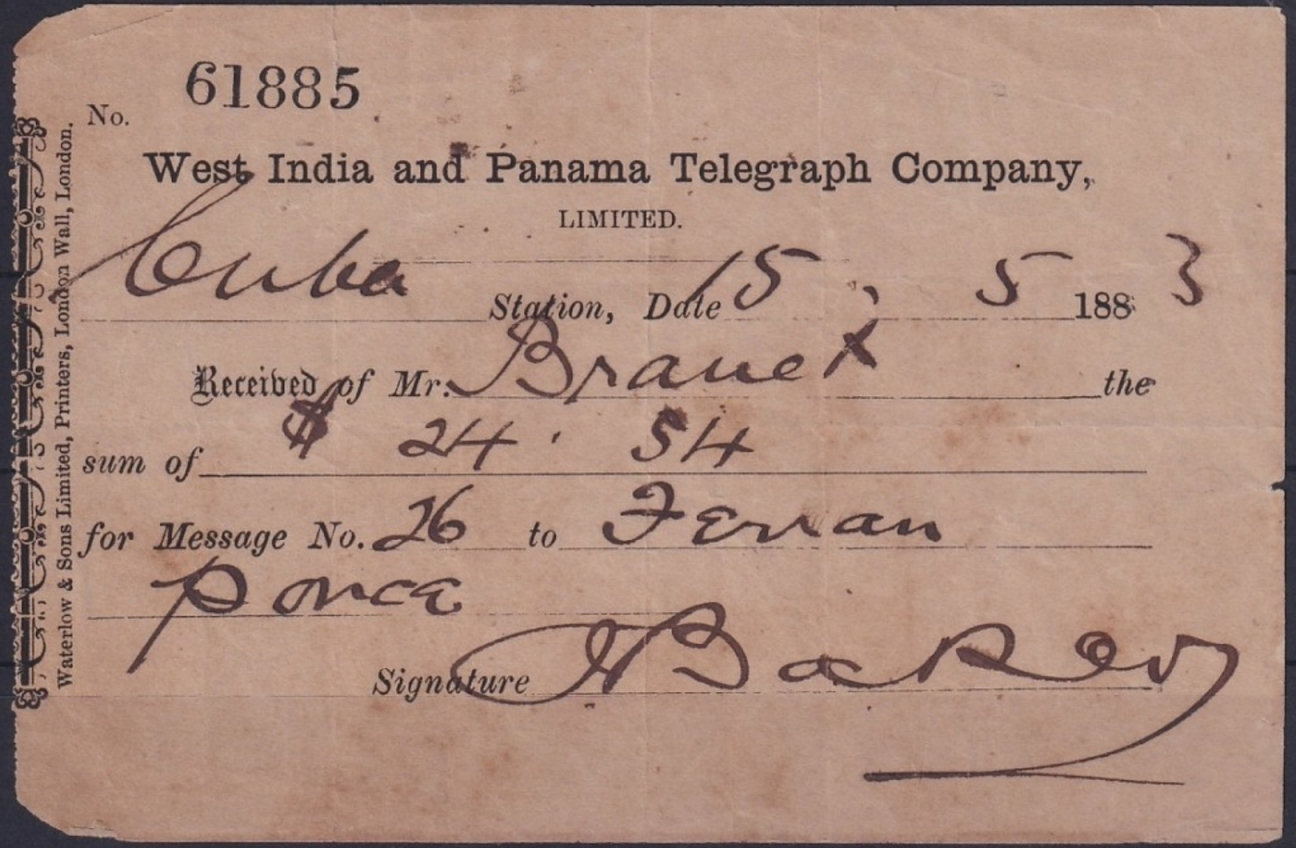 61885
No.
West India and Panama Telegraph Company,
LIMITED.
Cuba Station, Date 15 , 5 1883
Received of Mr. the
sum of $ 24 . 54
for Message No. 26 to Ferran
Ponce
Signature
Waterlow & Sons Limited, Printers, London Wall, London.